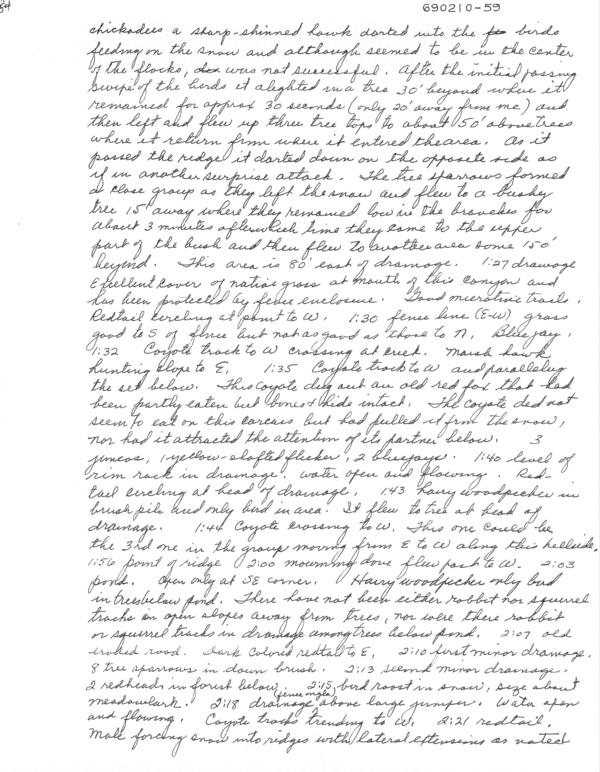 690210-59
chickadees a sharp-shinned hawk darted into the birds
feeding on the snow and although seemed to be in the center
of the flocks, was not successful. After the initial passing
swipe of the birds it alighted in a tree 30' beyond where it
remained for approx 30 seconds (only 20' away from me) and
then left and flew up three tree tops to about 50' above trees
where it return from where it entered the area. As it
passed the ridge it darted down on the opposite side as
if in another surprise attack. The tree sparrows formed
a close group as they left the snow and flew to a bushy
tree 15' away where they remained low in the branches for
about 3 minutes after which time they came to the upper
part of the bush and then flew to another area some 150'
beyond. This area is 80' east of drainage. 1:27 drainage
Excellent cover of native grass at mouth of this canyon and
has been protected by fence enclosure. Good microtine trails.
Redtail circling at point to W. 1:30 fence line (E-W) grass
good to S of fence but not as good as those to N. Bluejay.
1:32 Coyote track to W crossing at creek. Marsh hawk
hunting slope to E. 1:35 Coyote track to W and paralleling
the set below. This coyote dug out an old red fox that had
been partly eaten but bones & hide intact. The coyote did not
seem to eat on this carcass but had pulled it from the snow,
nor had it attracted the attention of its partner below. 3
juncos, 1 yellow-shafted flicker, 2 bluejays. 1:40 level of
rim rock in drainage. Water open and flowing. Red-
tail circling at head of drainage. 1:43 hairy woodpecker in
brush pile and only bird in area. It flew to tree at head of
drainage. 1:44 Coyote crossing to W. This one could be
the 3rd one in the group moving from E to W along this hillside.
1:56 point of ridge 2:00 mourning dove flew past to W. 2:03
pond. Open only at SE corner. Hairy woodpecker only bird
in trees below pond. There have not been either rabbit nor squirrel
tracks on open slopes away from trees, nor were there rabbit
or squirrel tracks in drainage among trees below pond. 2:07 old
eroded road. Dark colored redtail to E. 2:10 first minor drainage.
8 tree sparrows in down brush. 2:13 second minor drainage.
2 redheads in forest below. 2:15 bird roost in snow, size about
meadowlark. 2:18 drainage above large juniper. Water open
and flowing. Coyote tracks trending to W. 2:21 redtail.
Mole forcing snow into ridges with lateral extensions as noted